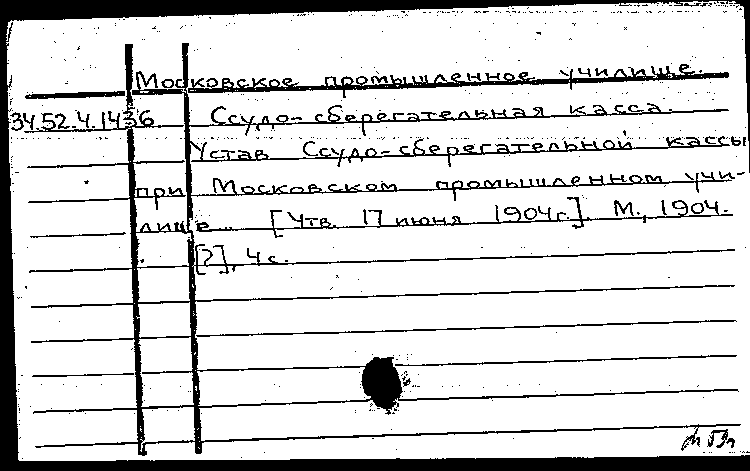 Московское промышленное училище.
34.52.4.1436 Ссудо-сберегательная касса.
Устав Ссудо-сберегательной кассы
при Московском промышленном учи-
лище. [Утв. 17 июня 1904г.]. М., 1904.
[2], 4 с.